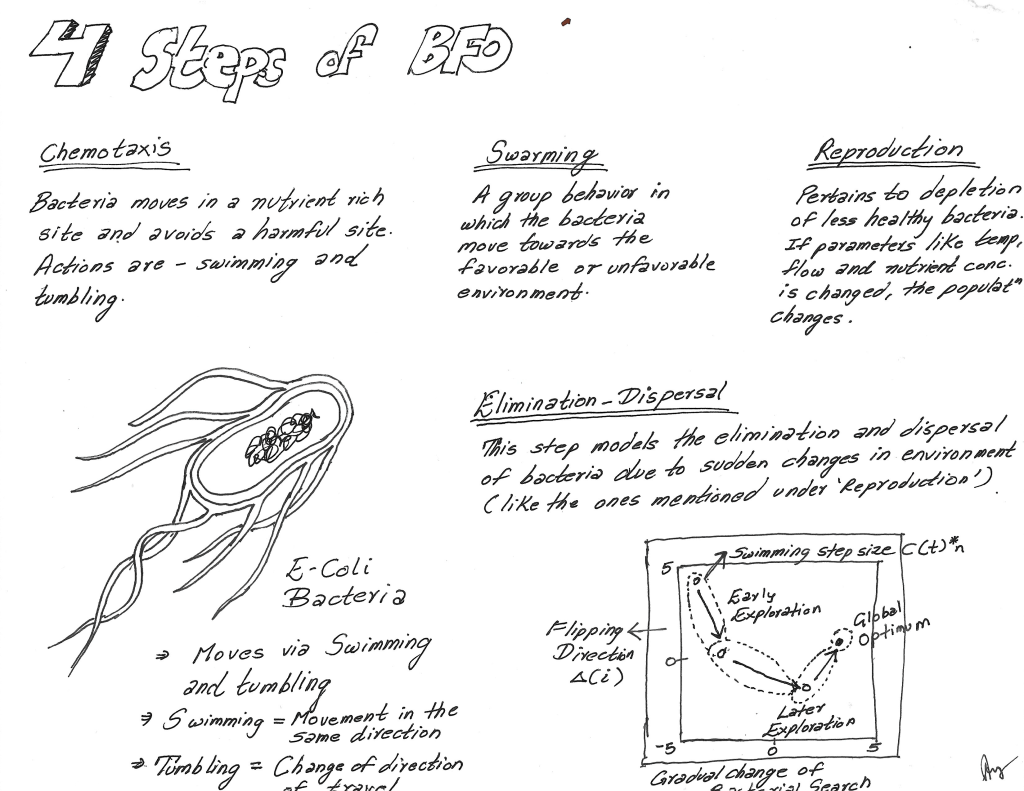 4 Steps of BFO
Chemotaxis
Bacteria moves in a nutrient rich
site and avoids a harmful site.
Actions are - swimming and
tumbling.
Swarming
A group behavior in
which the bacteria
move towards the
favorable or unfavorable
environment.
Reproduction
Pertains to depletion
of less healthy bacteria.
If parameters like temp,
flow and nutrient conc.
is changed, the populatⁿ
changes.
E-Coli
Bacteria
⇒ Moves via Swimming
and tumbling
⇒ Swimming = Movement in the
same direction
⇒ Tumbling = Change of direction
of travel
Elimination - Dispersal
This step models the elimination and dispersal
of bacteria due to sudden changes in environment
(like the ones mentioned under 'Reproduction').
Swimming step size C(t)*n
5
Early
Exploration
Global
Optimum
Flipping
Direction
Δ(i)
0
Later
Exploration
-5
0
5
Gradual change of
Bacterial Search